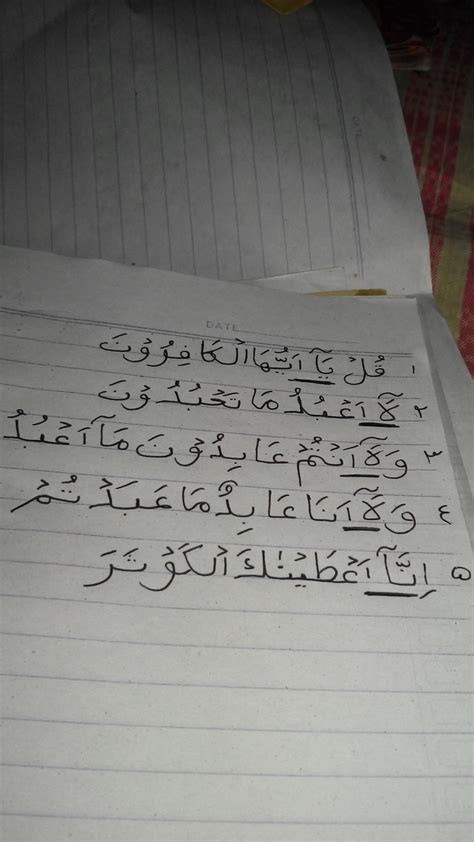 DATE
١ قُلْ يَآ اَيُّهَا الْكَافِرُوْنَ
٢ لَآ اَعْبُدُ مَا تَعْبُدُوْنَ
٣ وَلَآ اَنْتُمْ عَابِدُوْنَ مَآ اَعْبُدُ
٤ وَلَآ اَنَا عَابِدٌ مَا عَبَدْتُمْ
٥ اِنَّآ اَعْطَيْنٰكَ الْكَوْثَرَ